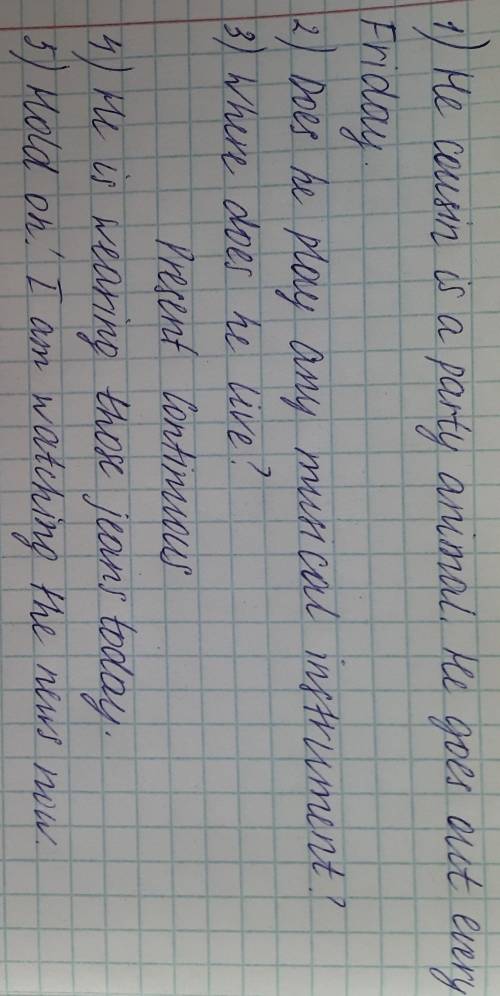 1) He cousin is a party animal. He goes out every
Friday.
2) Does he play any musical instrument?
3) Where does he live?
Present Continuous
4) He is wearing those jeans today.
5) Hold on! I am watching the news now.